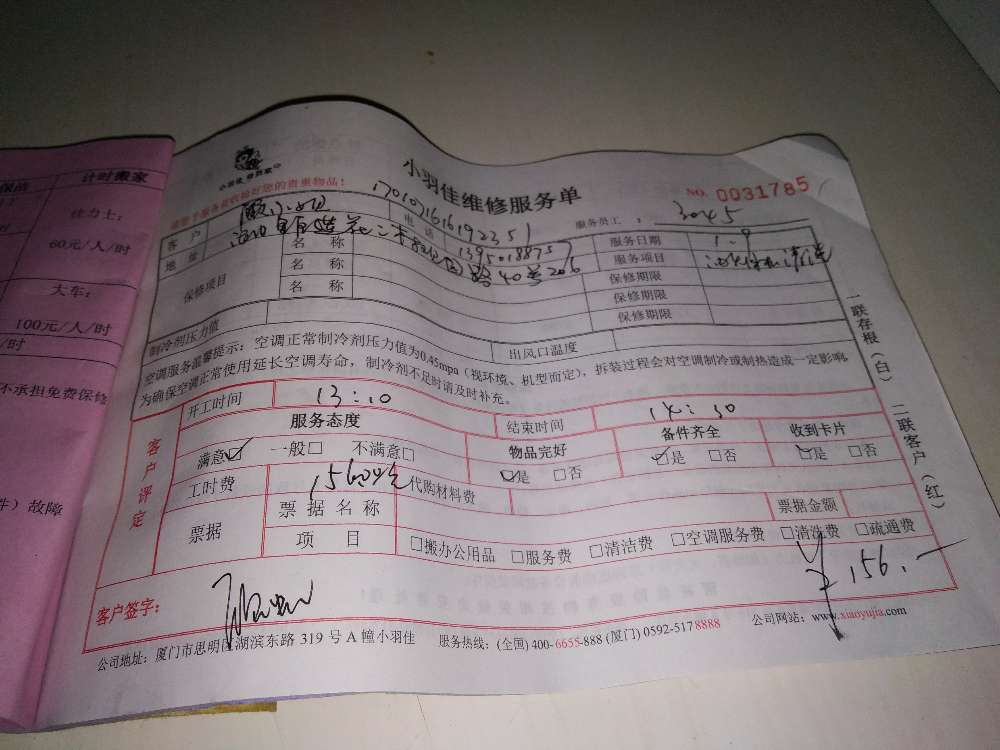 保洁
计时搬家
佳力士：
60元/人/时
大车：
100元/人/时
/时
不承担免费保修
件）故障
小羽佳维修服务单
NO. 0031785
服务员工： 3045
客 户
电 话 17010716161922351
服务日期 1.9
地 址
13950188757
路40号206
服务项目
保修项目
名 称
保修期限
名 称
保修期限
名 称
保修期限
制冷剂压力值
出风口温度
空调服务温馨提示：空调正常制冷剂压力值为0.45mpa（视环境、机型而定），拆装过程会对空调制冷或制热造成一定影响
为确保空调正常使用延长空调寿命，制冷剂不足时请及时补充。
一联存根（白） 二联客户（红）
客户评定
开工时间 13:10
结束时间 14:30
服务态度
物品完好
备件齐全
收到卡片
满意☑ 一般□ 不满意□
☑是 □否
☑是 □否
☑是 □否
工时费 156
代购材料费
票据
票 据 名 称
票据金额
项 目
□搬办公用品 □服务费 □清洁费 □空调服务费 □清洗费 □疏通费
¥156.—
客户签字：
公司地址：厦门市思明区湖滨东路 319 号 A 幢小羽佳 服务热线：(全国) 400-6655-888 (厦门) 0592-5178888 公司网站：www.xiaoyujia.com